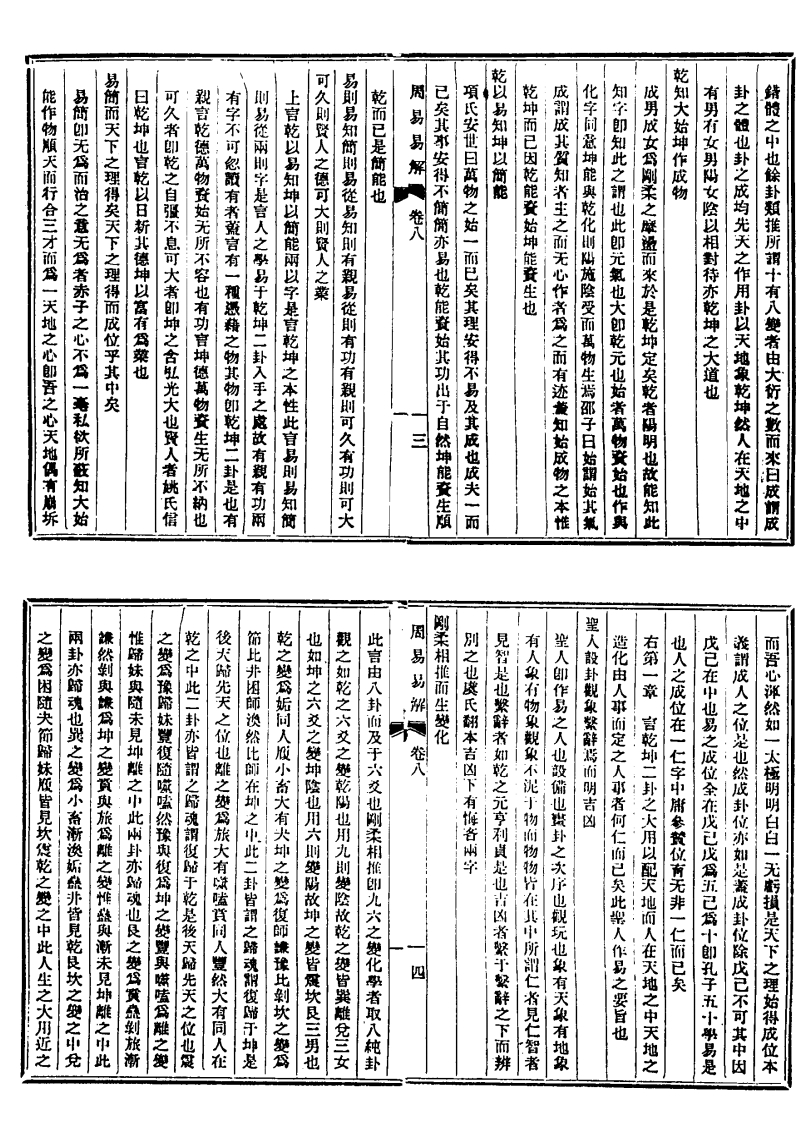 錯體之中也餘卦類推所謂十有八變者由大衍之數而來曰成謂成
卦之體也卦之成均先天之作用卦以天地象乾坤然人在天地之中
有男有女男陽女陰以相對待亦乾坤之大道也
乾知大始坤作成物
成男成女爲剛柔之摩盪而來於是乾坤定矣乾者陽明也故能知此
知字卽知此之謂也此卽元氣也大卽乾元也始者萬物資始也作與
化字同意坤能與乾化則陽施陰受而萬物生焉邵子曰始謂始其氣
成謂成其質知者主之而无心作者爲之而有迹蓋知始成物之本惟
乾坤而已因乾能資始坤能資生也
乾以易知坤以簡能
項氏安世曰萬物之始一而已矣其理安得不易及其成也成夫一而
已矣其事安得不簡簡亦易也乾能資始其功出于自然坤能資生順
周易易解 卷八 一三
乾而已是簡能也
易則易知簡則易從易知則有親易從則有功有親則可久有功則可大
可久則賢人之德可大則賢人之業
上言乾以易知坤以簡能兩以字是言乾坤之本性此言易則易知簡
則易從兩則字是言人之學易于乾坤二卦入手之處故有親有功兩
有字不可忽讀有者蓋言有一種憑藉之物其物卽乾坤二卦是也有
親言乾德萬物資始无所不容也有功言坤德萬物資生无所不納也
可久者卽乾之自强不息可大者卽坤之含弘光大也賢人者姚氏信
曰乾坤也言乾以日新其德坤以富有爲業也
易簡而天下之理得矣天下之理得而成位乎其中矣
易簡卽无爲而治之意无爲者赤子之心不爲一毫私欲所蔽知大始
能作物順天而行合三才而爲一天地之心卽吾之心天地偶有崩坼
而吾心渾然如一太極明明白白一无虧損是天下之理始得成位本
義謂成人之位是也然成卦位亦如是蓋成卦位除戊己不可其中因
戊己在中也易之成位全在戊己戊爲五己爲十卽孔子五十學易是
也人之成位在一仁字中庸參贊位育无非一仁而已矣
右第一章 言乾坤二卦之大用以配天地而人在天地之中天地之
造化由人事而定之人事者何仁而已矣此聖人作易之要旨也
聖人設卦觀象繫辭焉而明吉凶
聖人卽作易之人也設備也蓋卦之次序也觀玩也象有天象有地象
有人象有物象觀象不泥于物而物物皆在其中所謂仁者見仁智者
見智是也繫辭者如乾之元亨利貞是也吉凶者繫于繫辭之下而辨
別之也虞氏翻本吉凶下有悔吝兩字
剛柔相推而生變化
周易易解 卷八 一四
此言由八卦而及于六爻也剛柔相推卽九六之變化學者取八純卦
觀之如乾之六爻之變乾陽也用九則變陰故乾之變皆巽離兌三女
也如坤之六爻之變坤陰也用六則變陽故坤之變皆震坎艮三男也
乾之變爲姤同人履小畜大有夬坤之變爲復師謙豫比剝坎之變爲
節比井困師渙然比師在坤之中此二卦皆謂之歸魂謂復歸于坤是
後天歸先天之位也離之變爲旅大有噬嗑賁同人豐然大有同人在
乾之中此二卦亦皆謂之歸魂謂復歸于乾是後天歸先天之位也震
之變爲豫歸妹豐復隨噬嗑然豫與復爲坤之變豐與噬嗑爲離之變
惟歸妹與隨未見坤離之中此兩卦亦歸魂也艮之變爲賁蠱剝旅漸
謙然剝與謙爲坤之變賁與旅爲離之變惟蠱與漸未見坤離之中此
兩卦亦歸魂也巽之變爲小畜漸渙姤蠱井皆見乾艮坎之變之中兌
之變爲困隨夬節歸妹履皆見坎震乾之變之中此人生之大用近之